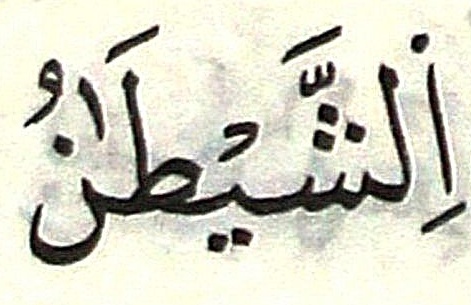 اِلشَّيْطَٰنُ